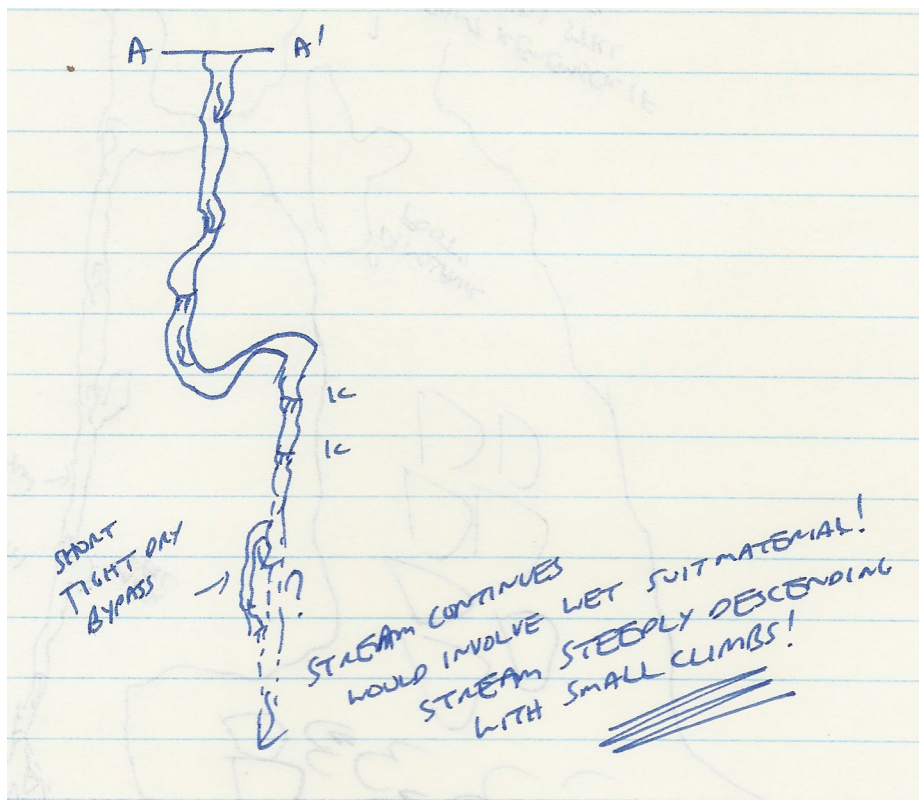 A A'
1C
1C
SHORT
TIGHT DRY
BYPASS
?
STREAM CONTINUES
WOULD INVOLVE WET SUIT MATERIAL!
STREAM STEEPLY DESCENDING
WITH SMALL CLIMBS!